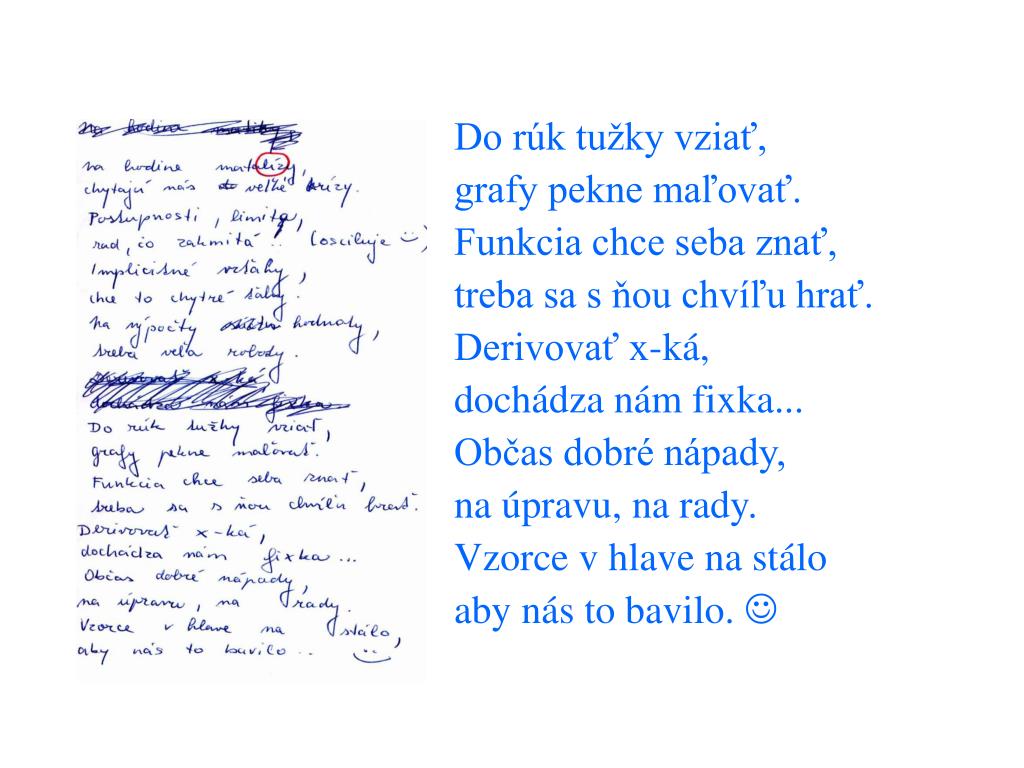 na hodine matalízy,
chytajú nás veľké krízy.
Postupnosti, limita,
rad, čo zakmitá.. (osciluje ☺)
Implicitné vzťahy,
chce to chytré ťahy.
Na výpočty hodnoty,
treba veľa roboty.
Do rúk tužky vziať,
grafy pekne maľovať.
Funkcia chce seba znať,
treba sa s ňou chvíľu hrať.
Derivovať x-ká,
dochádza nám fixka...
Občas dobré nápady,
na úpravu, na rady.
Vzorce v hlave na stálo,
aby nás to bavilo.. ☺
Do rúk tužky vziať,
grafy pekne maľovať.
Funkcia chce seba znať,
treba sa s ňou chvíľu hrať.
Derivovať x-ká,
dochádza nám fixka...
Občas dobré nápady,
na úpravu, na rady.
Vzorce v hlave na stálo
aby nás to bavilo. ☺